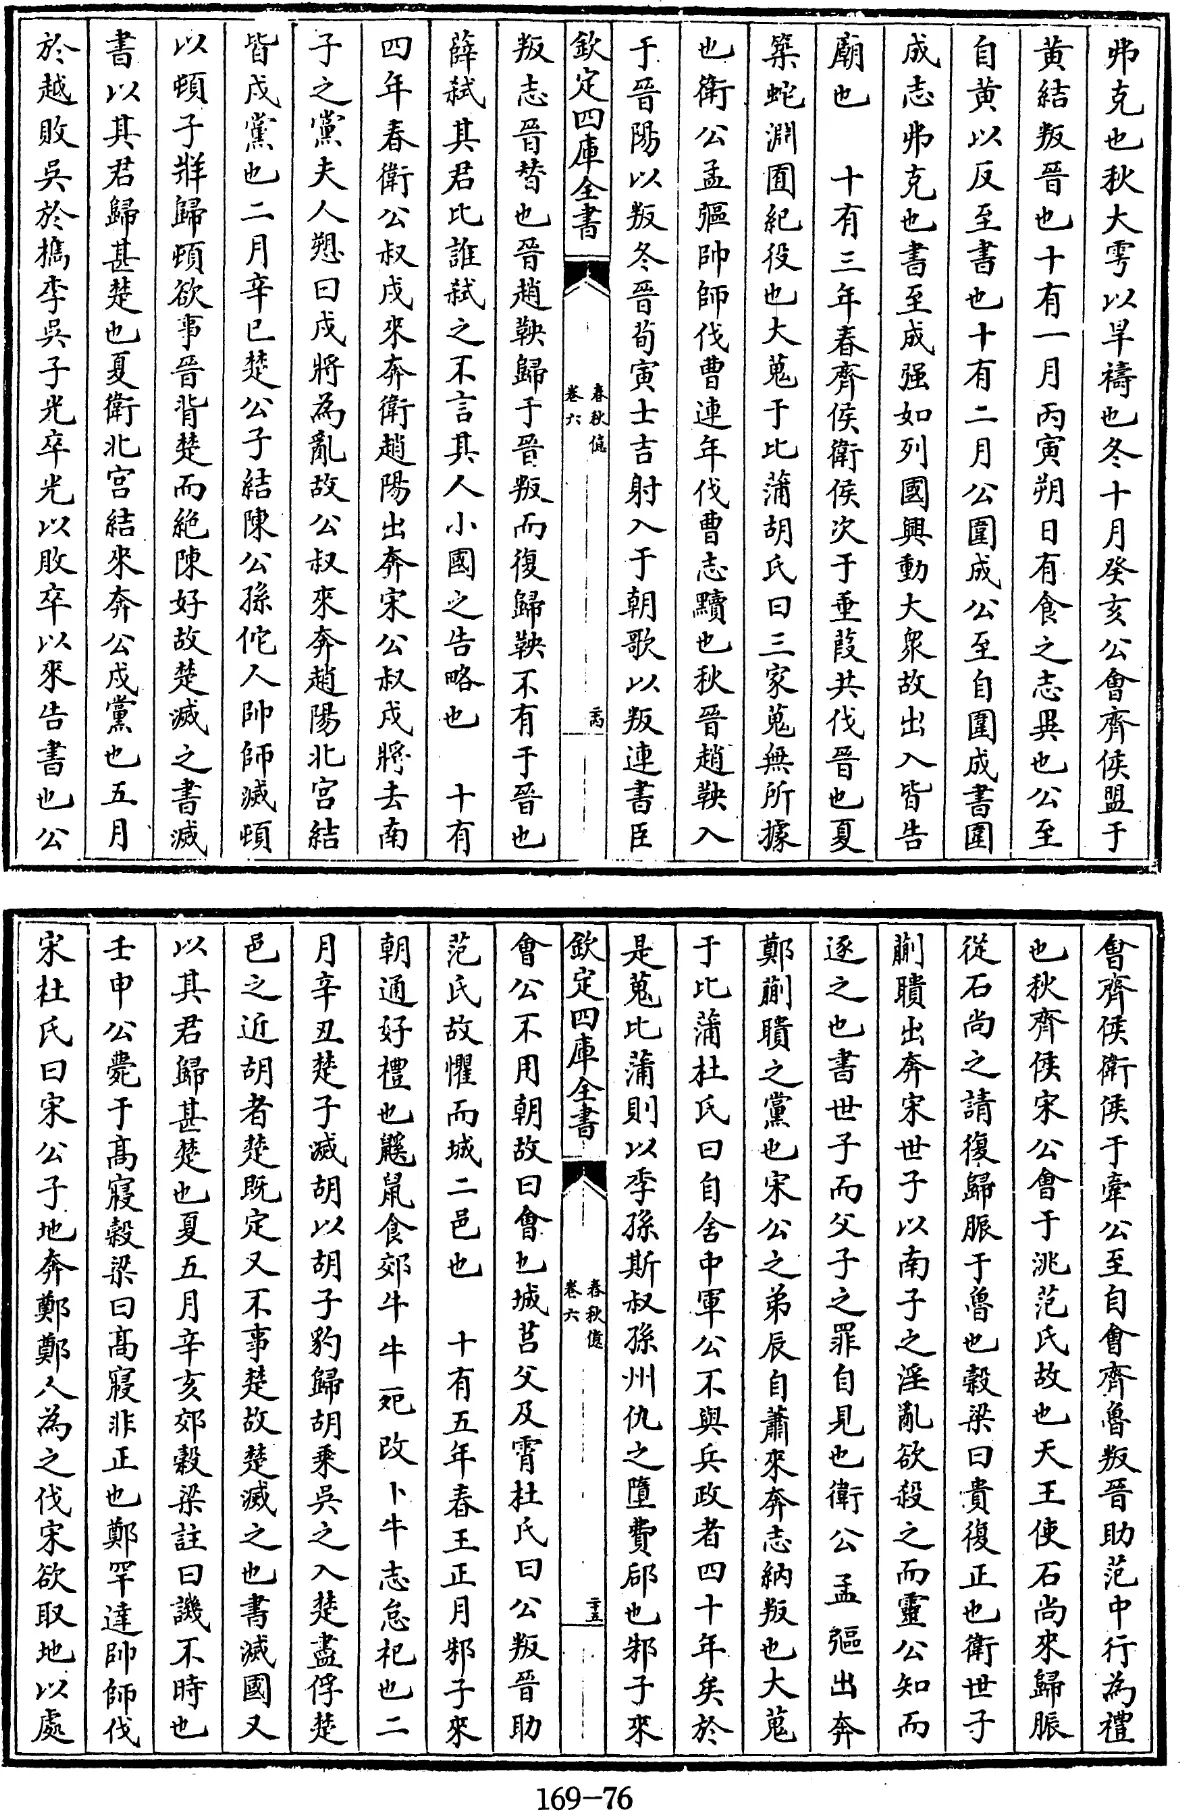 弗克也秋大雩以旱禱也冬十月癸亥公會齊侯盟于
黄結叛晉也十有一月丙寅朔日有食之志異也公至
自黄以反至書也十有二月公圍成公至自圍成書圍
成志弗克也書至成强如列國興動大衆故出入皆告
廟也　十有三年春齊侯衛侯次于垂葭共伐晉也夏
築蛇淵囿紀役也大蒐于比蒲胡氏曰三家蒐無所據
也衛公孟彄帥師伐曹連年伐曹志黷也秋晉趙鞅入
于晉陽以叛冬晉荀寅士吉射入于朝歌以叛連書臣
欽定四庫全書　春秋億卷六
叛志晉替也晉趙鞅歸于晉叛而復歸鞅不有于晉也
薛弑其君比誰弑之不言其人小國之告略也　十有
四年春衛公叔戍來奔衛趙陽出奔宋公叔戍將去南
子之黨夫人愬曰戍將為亂故公叔來奔趙陽北宫結
皆戍黨也二月辛巳楚公子結陳公孫佗人帥師滅頓
以頓子牂歸頓欲事晉背楚而絶陳好故楚滅之書滅
書以其君歸甚楚也夏衛北宫結來奔公戍黨也五月
於越敗吳於檇李吳子光卒光以敗卒以來告書也公
會齊侯衛侯于牽公至自會齊魯叛晉助范中行為禮
也秋齊侯宋公會于洮范氏故也天王使石尚來歸脤
從石尚之請復歸脤于魯也穀梁曰貴復正也衛世子
蒯聵出奔宋世子以南子之淫亂欲殺之而靈公知而
逐之也書世子而父子之罪自見也衛公孟彄出奔
鄭蒯聵之黨也宋公之弟辰自蕭來奔志納叛也大蒐
于比蒲杜氏曰自舍中軍公不與兵政者四十年矣於
是蒐比蒲則以季孫斯叔孫州仇之墮費郈也邾子來
欽定四庫全書　春秋億卷六　二十五
會公不用朝故曰會也城莒父及霄杜氏曰公叛晉助
范氏故懼而城二邑也　十有五年春王正月邾子來
朝通好禮也鼷鼠食郊牛牛死改卜牛志怠祀也二
月辛丑楚子滅胡以胡子豹歸胡乘吳之入楚盡俘楚
邑之近胡者楚既定又不事楚故楚滅之也書滅國又
以其君歸甚楚也夏五月辛亥郊穀梁註曰譏不時也
壬申公薨于高寢穀梁曰高寢非正也鄭罕達帥師伐
宋杜氏曰宋公子地奔鄭鄭人為之伐宋欲取地以處
169-76